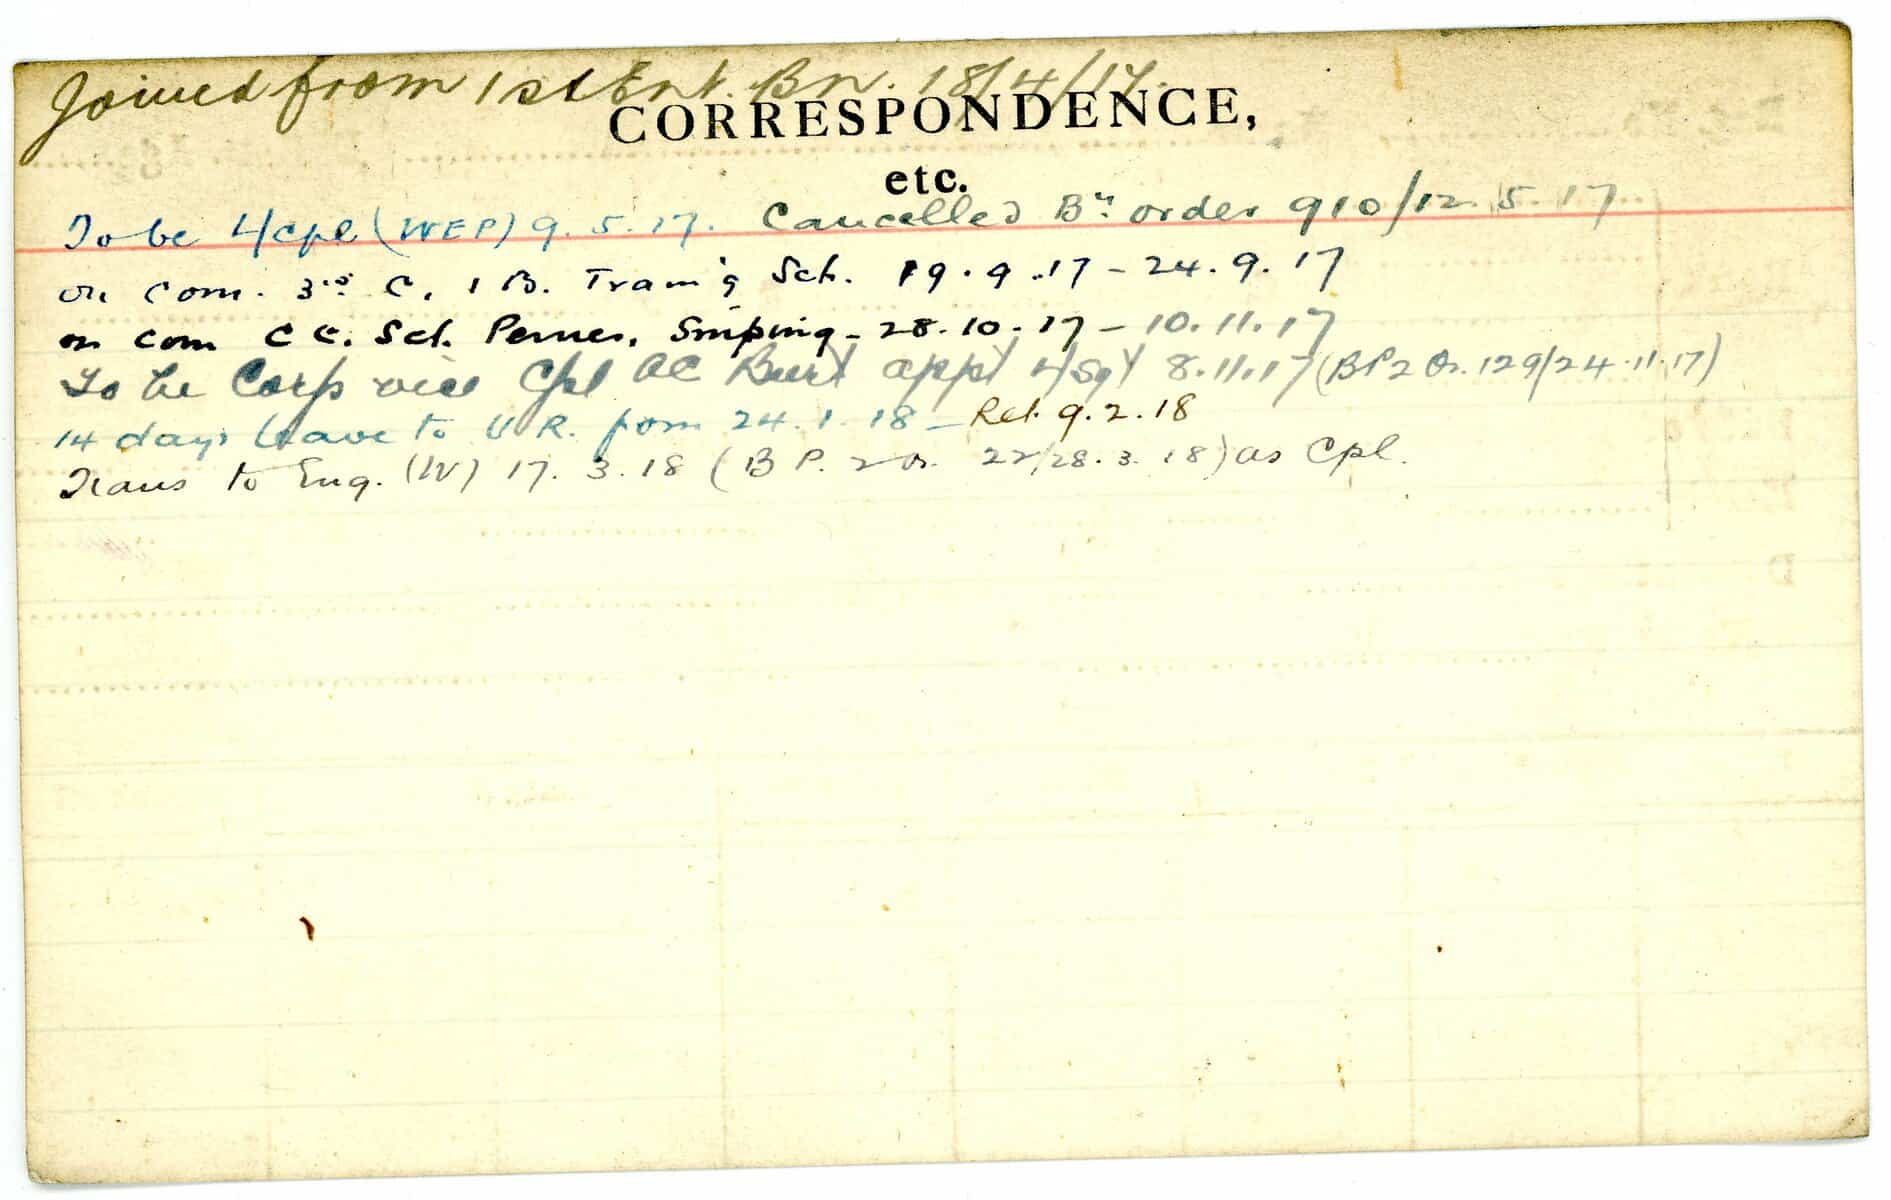 Joined from 1st Ent. Bn. 18/4/17.
CORRESPONDENCE,
etc.
To be L/Cpl (WEP) 9.5.17. Cancelled Bn order 910/12.5.17
on Com. 3rd C. I B. Train'g Sch. 19.9.17 - 24.9.17
on Com C C. Sch. Pernes, Sniping - 28.10.17 - 10.11.17
To be Corp vice Cpl AC Burt app't L/Sgt 8.11.17 (BP2 Or. 129/24.11.17)
14 days leave to U.K. from 24.1.18 - Ret. 9.2.18
Trans to Eng. (W) 17.3.18 (B P. 2 Or. 22/28.3.18) as Cpl.